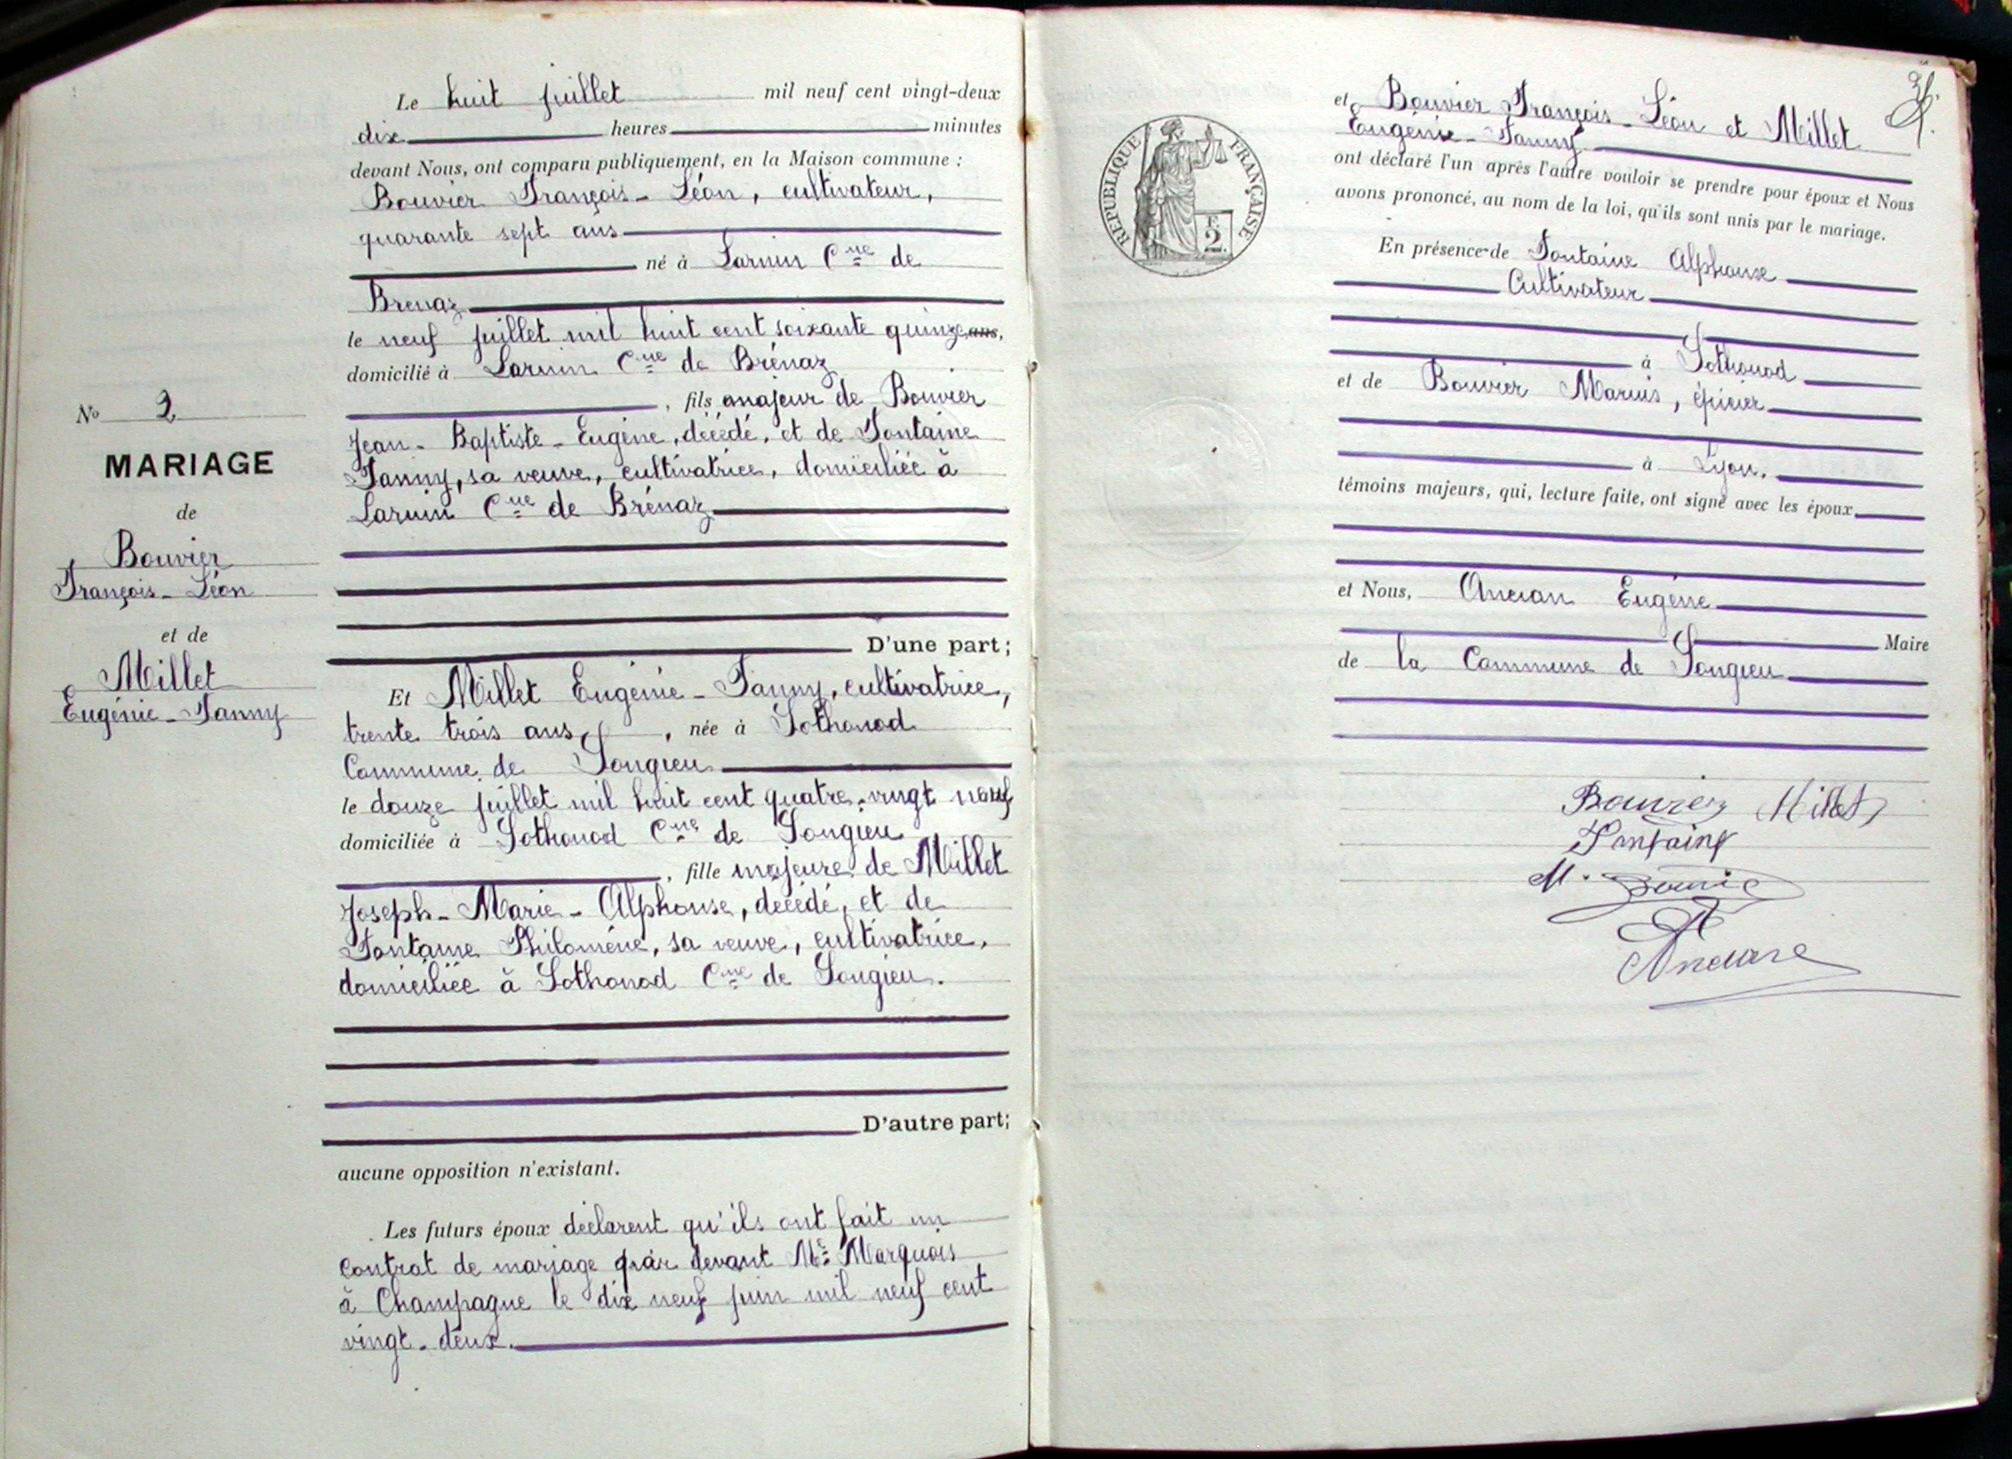 N° 2
MARIAGE
de
Bouvier
François-Léon
et de
Millet
Eugénie-Fanny
Le huit juillet mil neuf cent vingt-deux
dix heures minutes
devant Nous, ont comparu publiquement, en la Maison commune :
Bouvier François-Léon, cultivateur,
quarante sept ans
né à Larnin Cne de
Brenaz
le neuf juillet mil huit cent soixante quinze ans,
domicilié à Larnin Cne de Brénaz
, fils majeur de Bouvier
Jean-Baptiste-Eugène, décédé, et de Fontaine
Fanny, sa veuve, cultivatrice, domiciliée à
Larnin Cne de Brénaz
D'une part;
Et Millet Eugénie-Fanny, cultivatrice,
trente trois ans, née à Sothonod
Commune de Songieu
le douze juillet mil huit cent quatre-vingt neuf
domiciliée à Sothonod Cne de Songieu
, fille majeure de Millet
Joseph-Marie-Alphonse, décédé, et de
Fontaine Philomène, sa veuve, cultivatrice,
domiciliée à Sothonod Cne de Songieu.
D'autre part;
aucune opposition n'existant.
Les futurs époux déclarent qu'ils ont fait un
contrat de mariage par devant Me Marquois
à Champagne le dix neuf juin mil neuf cent
vingt-deux.
RÉPUBLIQUE FRANÇAISE
2
et Bouvier François-Léon et Millet
Eugénie-Fanny
ont déclaré l'un après l'autre vouloir se prendre pour époux et Nous
avons prononcé, au nom de la loi, qu'ils sont unis par le mariage.
En présence de Fontaine Alphonse
Cultivateur
à Sothonod
et de Bouvier Marius, épicier
à Lyon.
témoins majeurs, qui, lecture faite, ont signé avec les époux
et Nous, Ancian Eugène
Maire
de la Commune de Songieu
Bouvier Millet
Fontaine
M. Bouvier